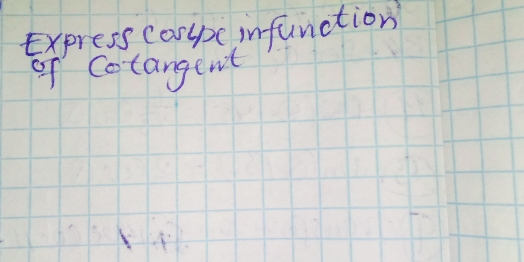 Express cosype infunction
of Cotangent